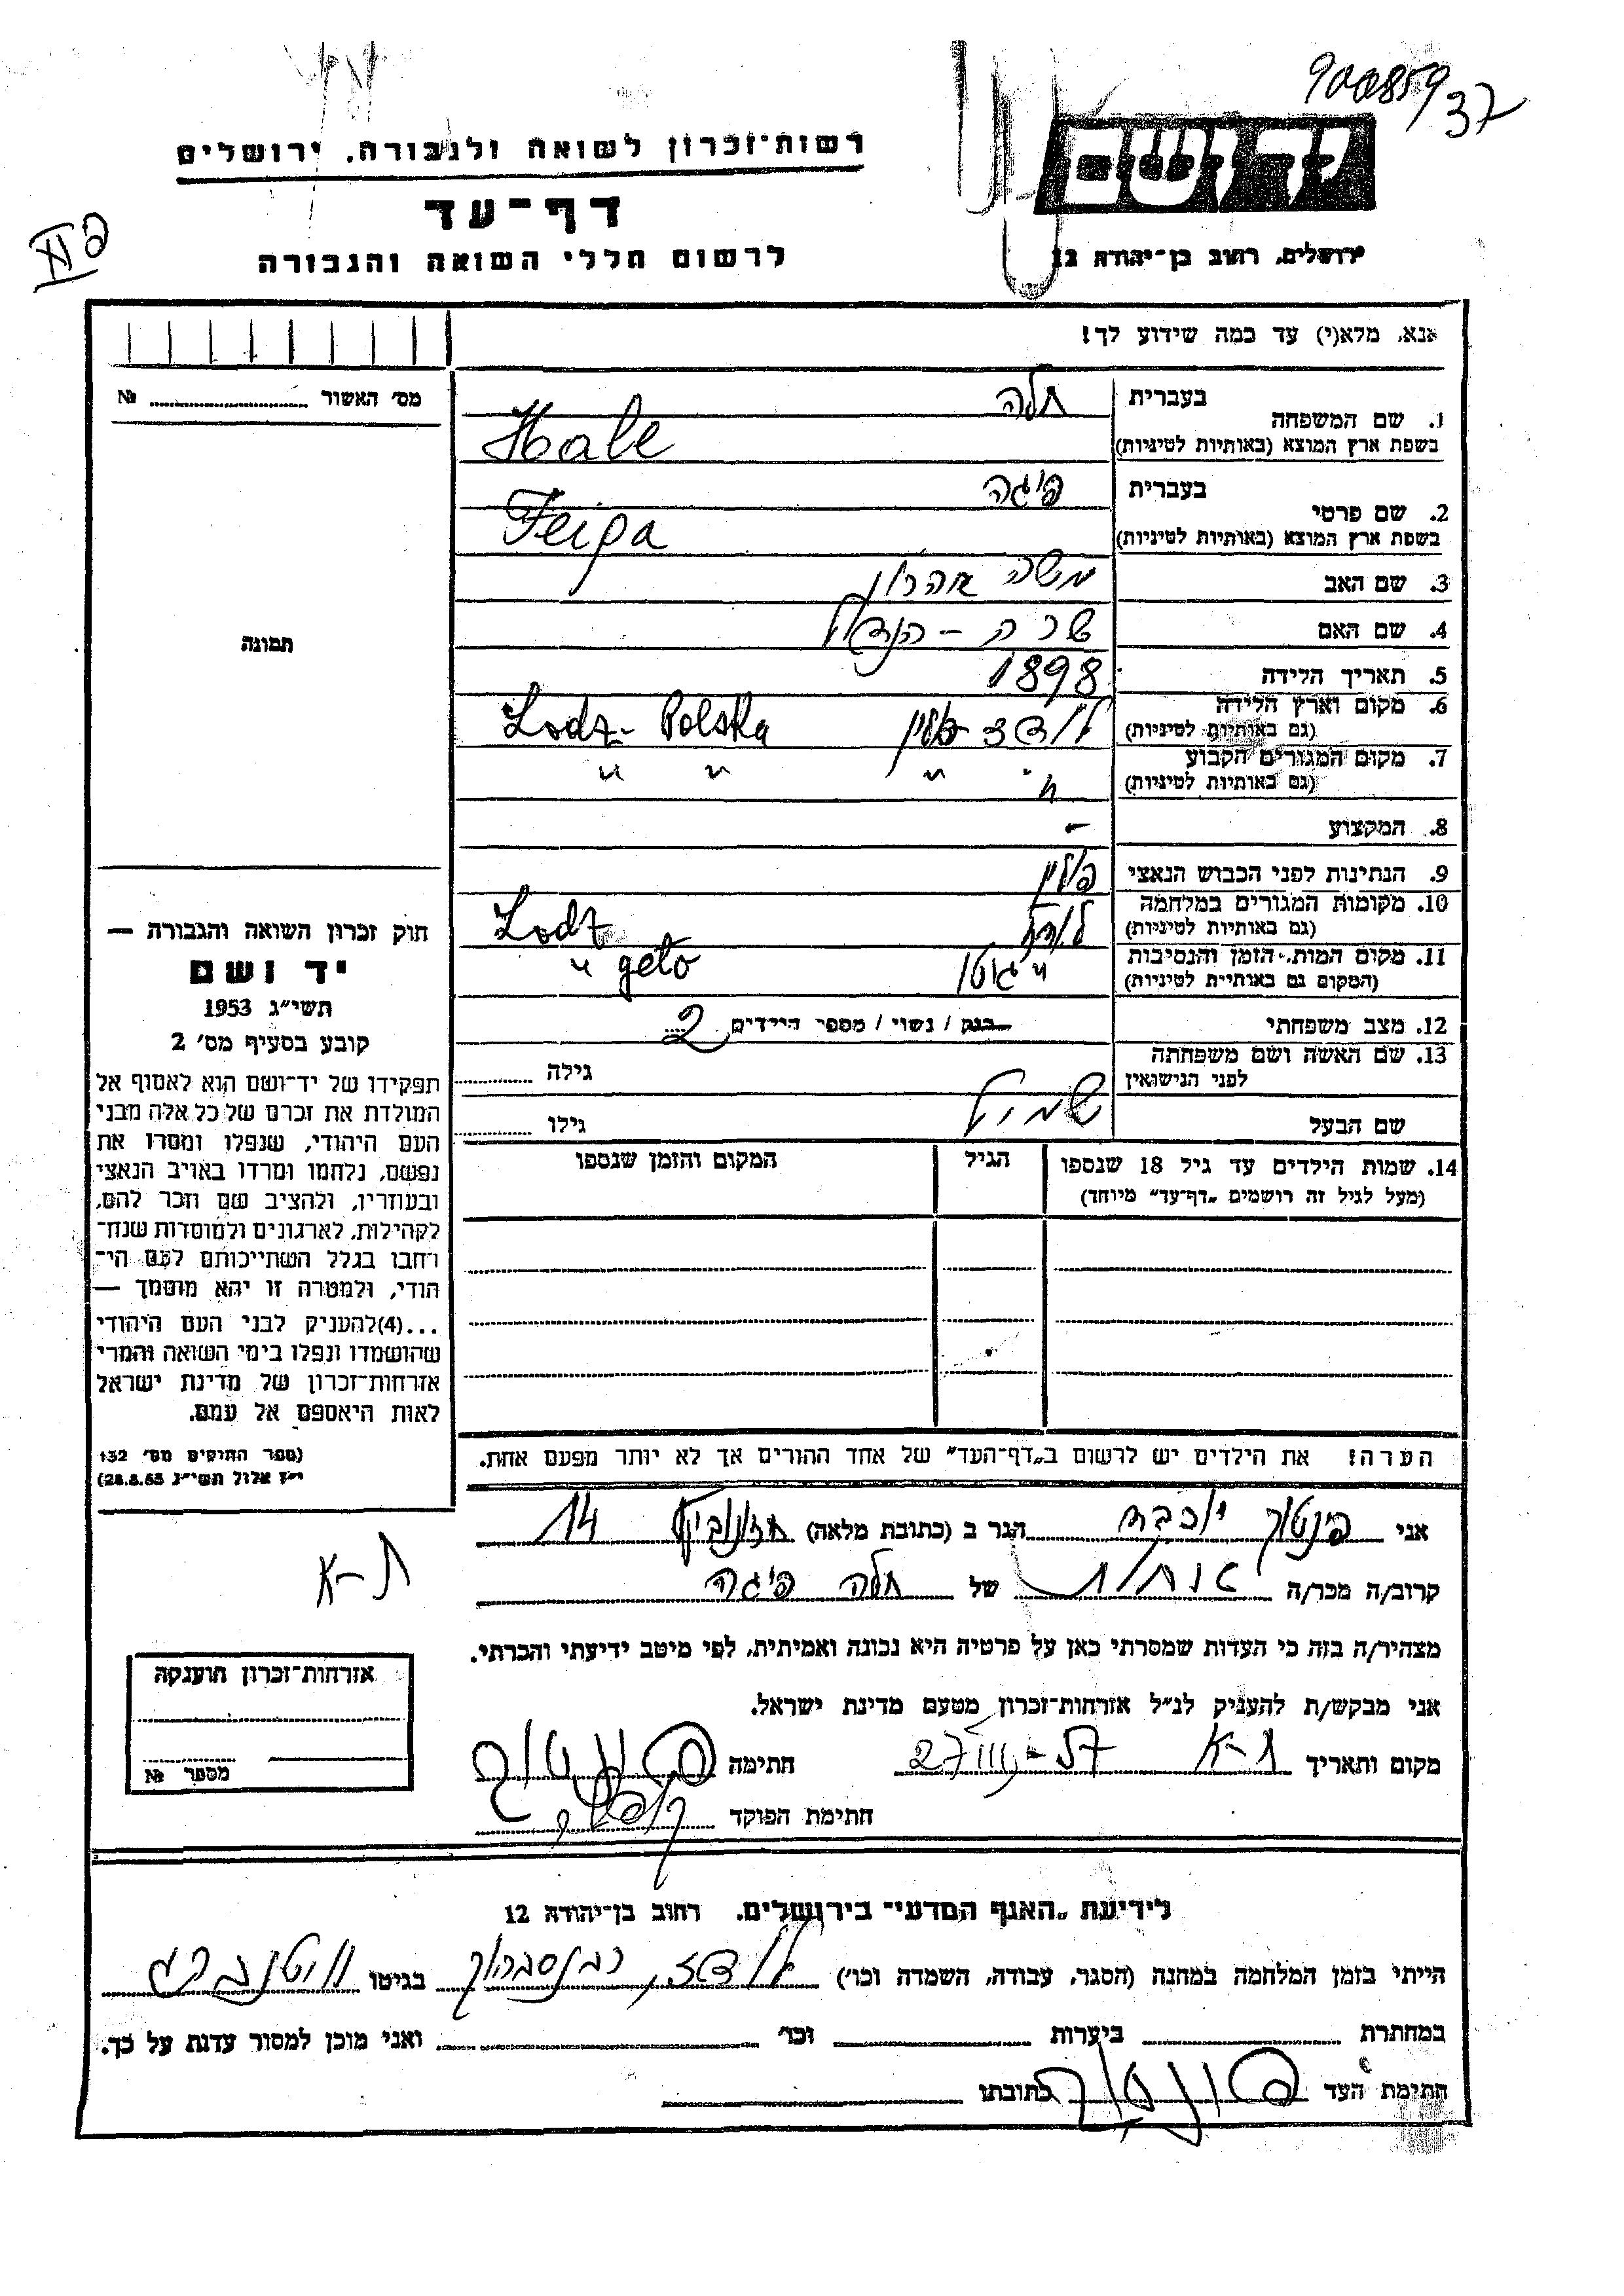 900859
37
רשות־זכרון לשואה ולגבורה, ירושלים
יד ושם
דף־עד
לרשום חללי השואה והגבורה
ירושלים, רחוב בן־יהודה 12
אנא, מלא(י) עד כמה שידוע לך!
מס׳ האשור № 
1. שם המשפחה בעברית חלה
בשפת ארץ המוצא (באותיות לטיניות) Hale
2. שם פרטי בעברית פיגה
בשפת ארץ המוצא (באותיות לטיניות) Feiga
3. שם האב משה אהרון
4. שם האם שרה –
5. תאריך הלידה 1898
6. מקום וארץ הלידה (גם באותיות לטיניות) לודז פולין Lodz - Polska
7. מקום המגורים הקבוע (גם באותיות לטיניות) " " " "
8. המקצוע –
9. הנתינות לפני הכבוש הנאצי פולין
10. מקומות המגורים במלחמה (גם באותיות לטיניות) לודז Lodz
11. מקום המות, הזמן והנסיבות (המקום גם באותיות לטיניות) " גיטו " geto
12. מצב משפחתי רווק / נשוי / מספר הילדים 2
13. שם האשה ושם משפחתה לפני הנישואין גילה
שם הבעל שמואל גילו
14. שמות הילדים עד גיל 18 שנספו הגיל המקום והזמן שנספו
(מעל לגיל זה רושמים „דף־עד" מיוחד)
תמונה
חוק זכרון השואה והגבורה —
יד ושם
תשי״ג 1953
קובע בסעיף מס׳ 2
תפקידו של יד־ושם הוא לאסוף אל
המולדת את זכרם של כל אלה מבני
העם היהודי, שנפלו ומסרו את
נפשם, נלחמו ומרדו באויב הנאצי
ובעוזריו, ולהציב שם וזכר להם,
לקהילות, לארגונים ולמוסדות שנח־
רחבו בגלל השתייכותם לעם הי־
הודי, ולמטרה זו יהא מוסמך —
...(4)להעניק לבני העם היהודי
שהושמדו ונפלו בימי השואה והמרי
אזרחות־זכרון של מדינת ישראל
לאות היאספם אל עמם.
(ספר החוקים מס׳ 132
י״ז אלול תשי״ג 28.8.53)
הערה! את הילדים יש לרשום ב„דף־העד" של אחד ההורים אך לא יותר מפעם אחת.
אני פינטוך יוכבד הגר ב (כתובת מלאה) 14
קרוב/ה מכר/ה אחות של חלה פיגה
ת-א
מצהיר/ה בזה כי העדות שמסרתי כאן על פרטיה היא נכונה ואמיתית, לפי מיטב ידיעתי והכרתי.
אני מבקש/ת להעניק לנ״ל אזרחות־זכרון מטעם מדינת ישראל.
מקום ותאריך ת-א 27/III-57 חתימה
חתימת הפוקד
אזרחות־זכרון הוענקה
מספר №
לידיעת „האגף המדעי" בירושלים. רחוב בן־יהודה 12
הייתי בזמן המלחמה במחנה (הסגר, עבודה, השמדה וכו׳) לודז, רבנסברוק בגיטו וויטנברג
במחתרת ביערות וכו׳ ואני מוכן למסור עדות על כך.
חתימת העד כתובתו